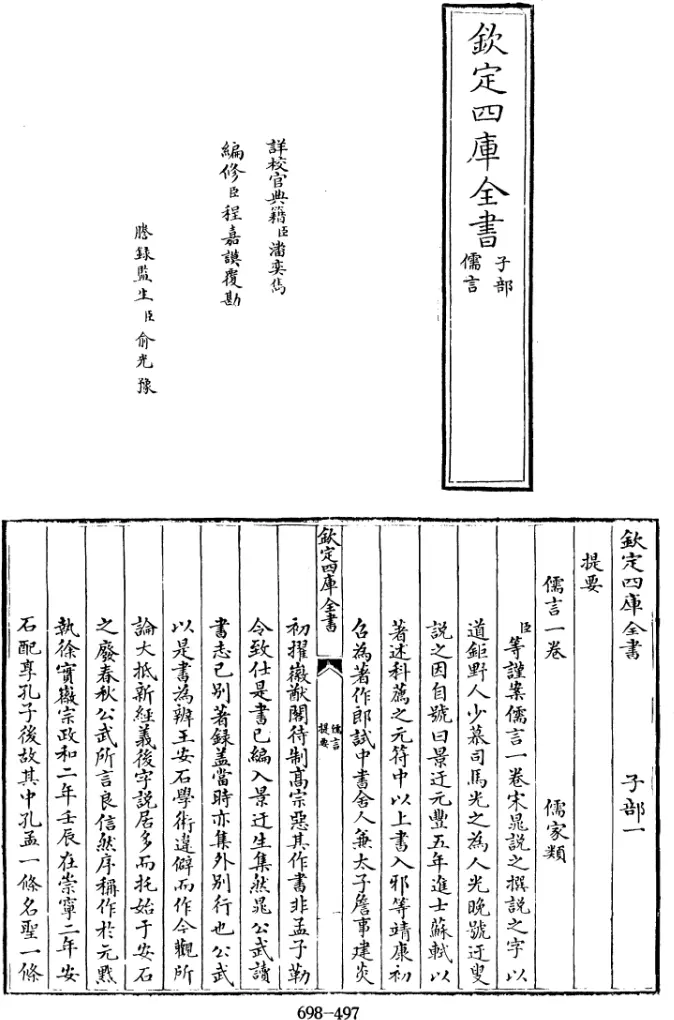 欽定四庫全書
子部
儒言
詳校官典籍臣潘奕雋
編修臣程嘉謨覆勘
謄錄監生臣俞光豫
欽定四庫全書 子部一
提要
儒言一卷 儒家類
臣等謹案儒言一卷宋晁說之撰說之字以
道鉅野人少慕司馬光之為人光晚號迂叟
說之因自號曰景迂元豐五年進士蘇軾以
著述科薦之元符中以上書入邪等靖康初
召為著作郎試中書舍人兼太子詹事建炎
欽定四庫全書
儒言
提要
初擢徽猷閣待制高宗惡其作書非孟子勒
令致仕是書已編入景迂生集然晁公武讀
書志已別著錄蓋當時亦集外別行也公武
以是書為辨王安石學術違僻而作今觀所
論大抵新經義後字說居多而托始于安石
之廢春秋公武所言良信然序稱作於元黓
執徐實徽宗政和二年壬辰在崇寧二年安
石配享孔子後故其中孔孟一條名聖一條
698-497